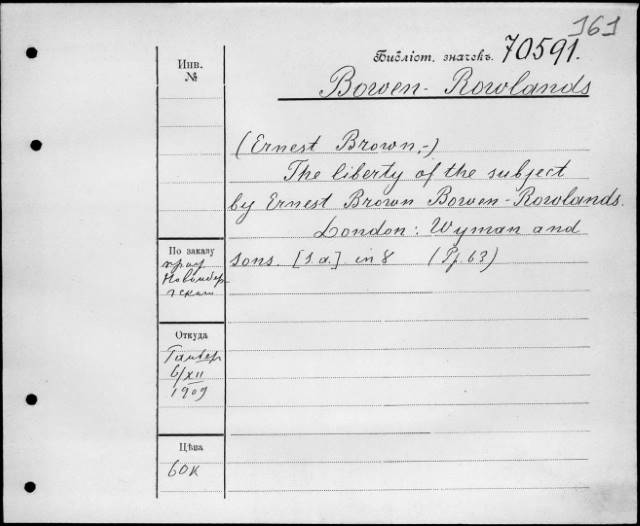 161
Библіот. значекъ. 70591.
Bowen-Rowlands
Инв.
№
(Ernest Brown,-)
The liberty of the subject
by Ernest Brown Bowen-Rowlands.
London: Wyman and
sons. [s a.] in 8 (Pp 63)
По заказу
проф
Откуда
6/XII
1909
Цѣна
60к